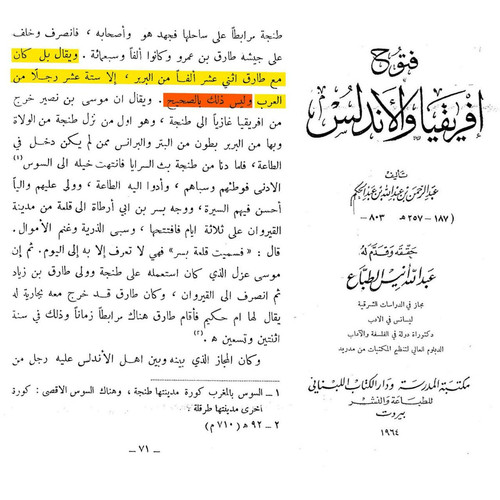 فتوح
إفريقيا والأندلس
تأليف
عبد الرحمن بن عبد الله بن عبد الحكم
(١٨٧ - ٢٥٧ هـ - ٨٠٣
حققه وقدم له
عبد الله أنيس الطباع
مجاز في الدراسات الشرقية
ليسانس في الادب
دكتوراة دولة في الفلسفة والآداب
الدبلوم العالي لتنظيم المكتبات من مدريد
مكتبة المدرسة ودار الكتاب اللبناني
للطباعة والنشر
بيروت
١٩٦٤
طنجة مرابطاً على ساحلها فجهد هو وأصحابه ، فانصرف وخلف
على جيشه طارق بن عمرو وكانوا ألفاً وسبعمائة . ويقال بل كان
مع طارق اثني عشر ألفاً من البربر ، إلا ستة عشر رجلاً من
العرب وليس ذلك بالصحيح . ويقال ان موسى بن نصير خرج
من افريقيا غازياً الى طنجة ، وهو اول من نزل طنجة من الولاة
وبها من البربر بطون من البتر والبرانس ممن لم يكن دخل في
الطاعة ، فلما دنا من طنجة بث السرايا فانتهت خيله الى السوس (١)
الادنى فوطئهم وسباهم ، وأدوا اليه الطاعة ، وولى عليهم والياً
أحسن فيهم السيرة ، ووجه بسر بن أبي أرطاة الى قلعة من مدينة
القيروان على ثلاثة ايام فافتتحها ، وسبى الذرية وغنم الأموال .
قال : «فسميت قلعة بسر» فهي لا تعرف إلا به إلى اليوم . ثم إن
موسى عزل الذي كان استعمله على طنجة وولى طارق بن زياد
ثم انصرف الى القيروان ، وكان طارق قد خرج معه بجارية له
يقال لها ام حكيم فأقام طارق هناك مرابطاً زماناً وذلك في سنة
اثنتين وتسعين ه (٢).
وكان المجاز الذي بينه وبين اهل الأندلس عليه رجل من
١ – السوس بالمغرب كورة مدينتها طنجة ، وهناك السوس الاقصى : كورة
اخرى مدينتها طرقلة :
٢ – ٩٢ ه (٧١٠ م)
– ٧١ –